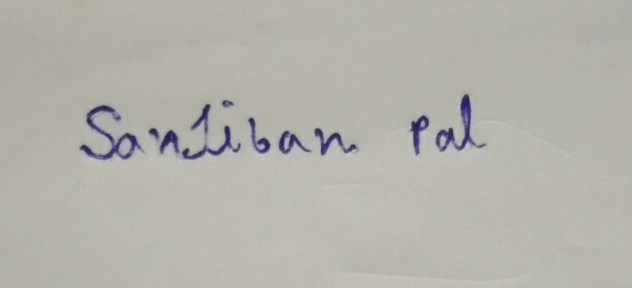 Sanjiban Pal